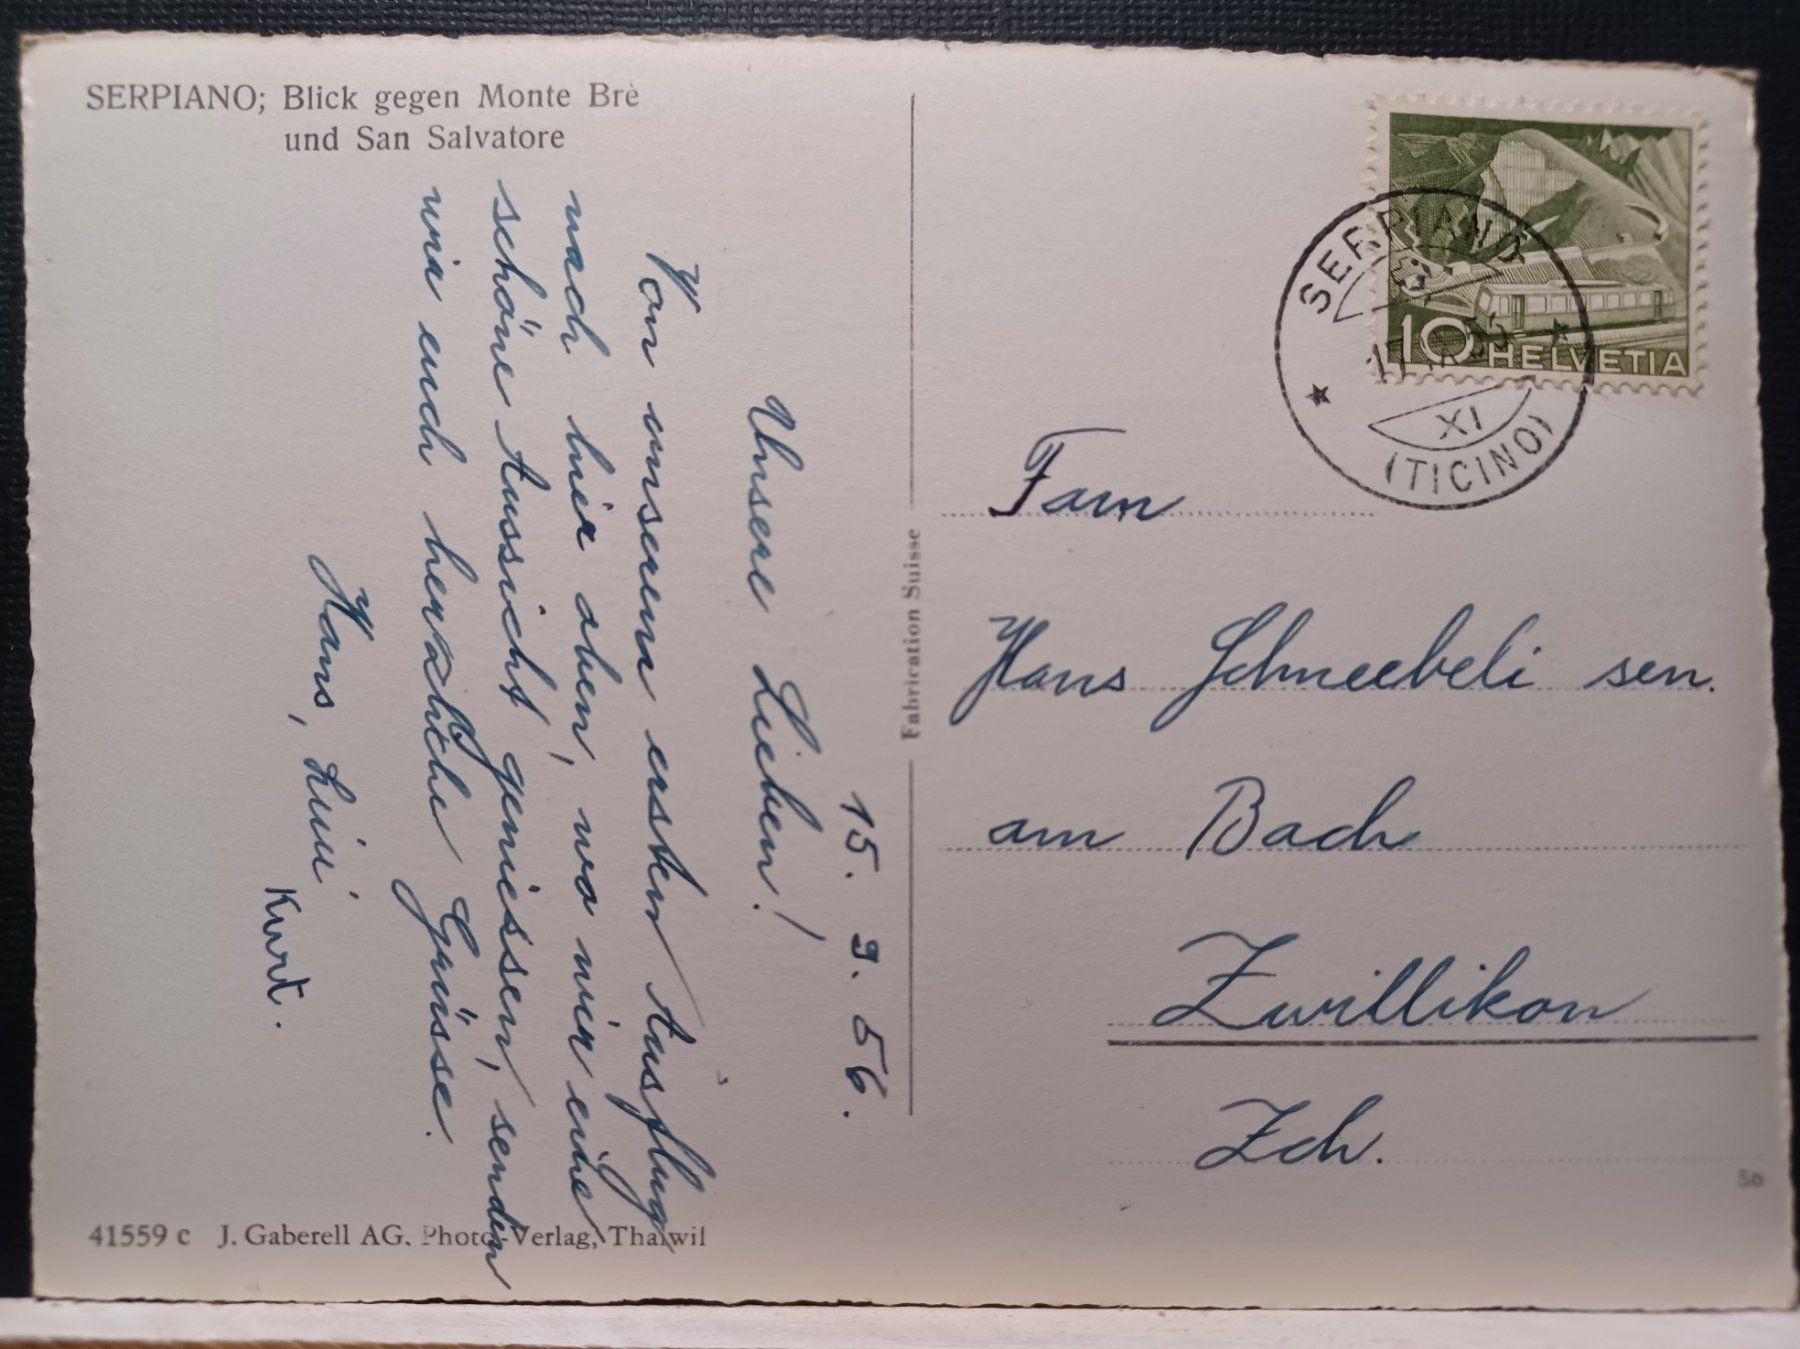 SERPIANO; Blick gegen Monte Brè
und San Salvatore
15. 9. 56.
Unsere Lieben!
Von unserem ersten Ausflug
nach hier oben, wo wir eine
schöne Aussicht geniessen, senden
wir euch herzliche Grüsse.
Hans, Luii
Kurt.
41559 c J. Gaberell AG. Photo-Verlag, Thalwil
Fabrication Suisse
10 HELVETIA
SERPIANO
XI
(TICINO)
Fam
Hans Schneebeli sen.
am Bach
Zwillikon
Zch.
50